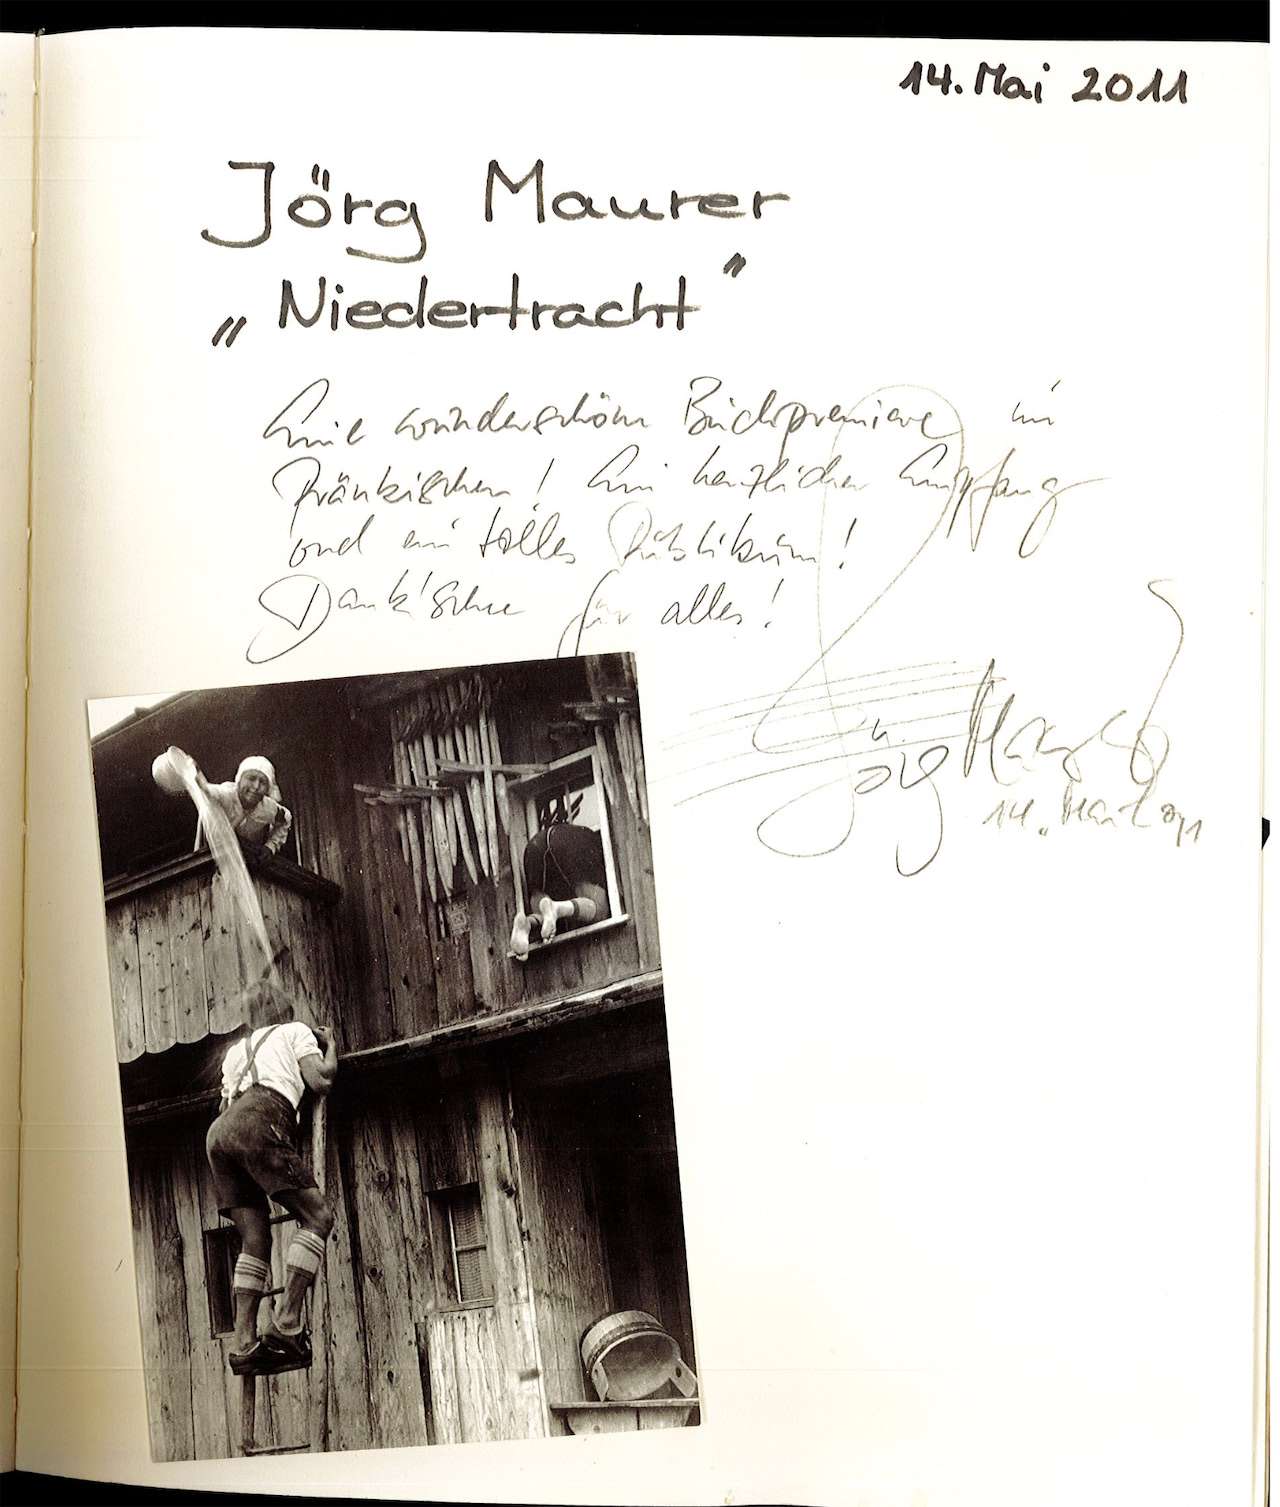 14. Mai 2011
Jörg Maurer
„Niedertracht"
Eine wunderschöne Buchpremiere im
Fränkischen! Ein herzlicher Empfang
und ein tolles Publikum!
Dank'schee für alles!
Jörg Maurer
14. Mai 2011